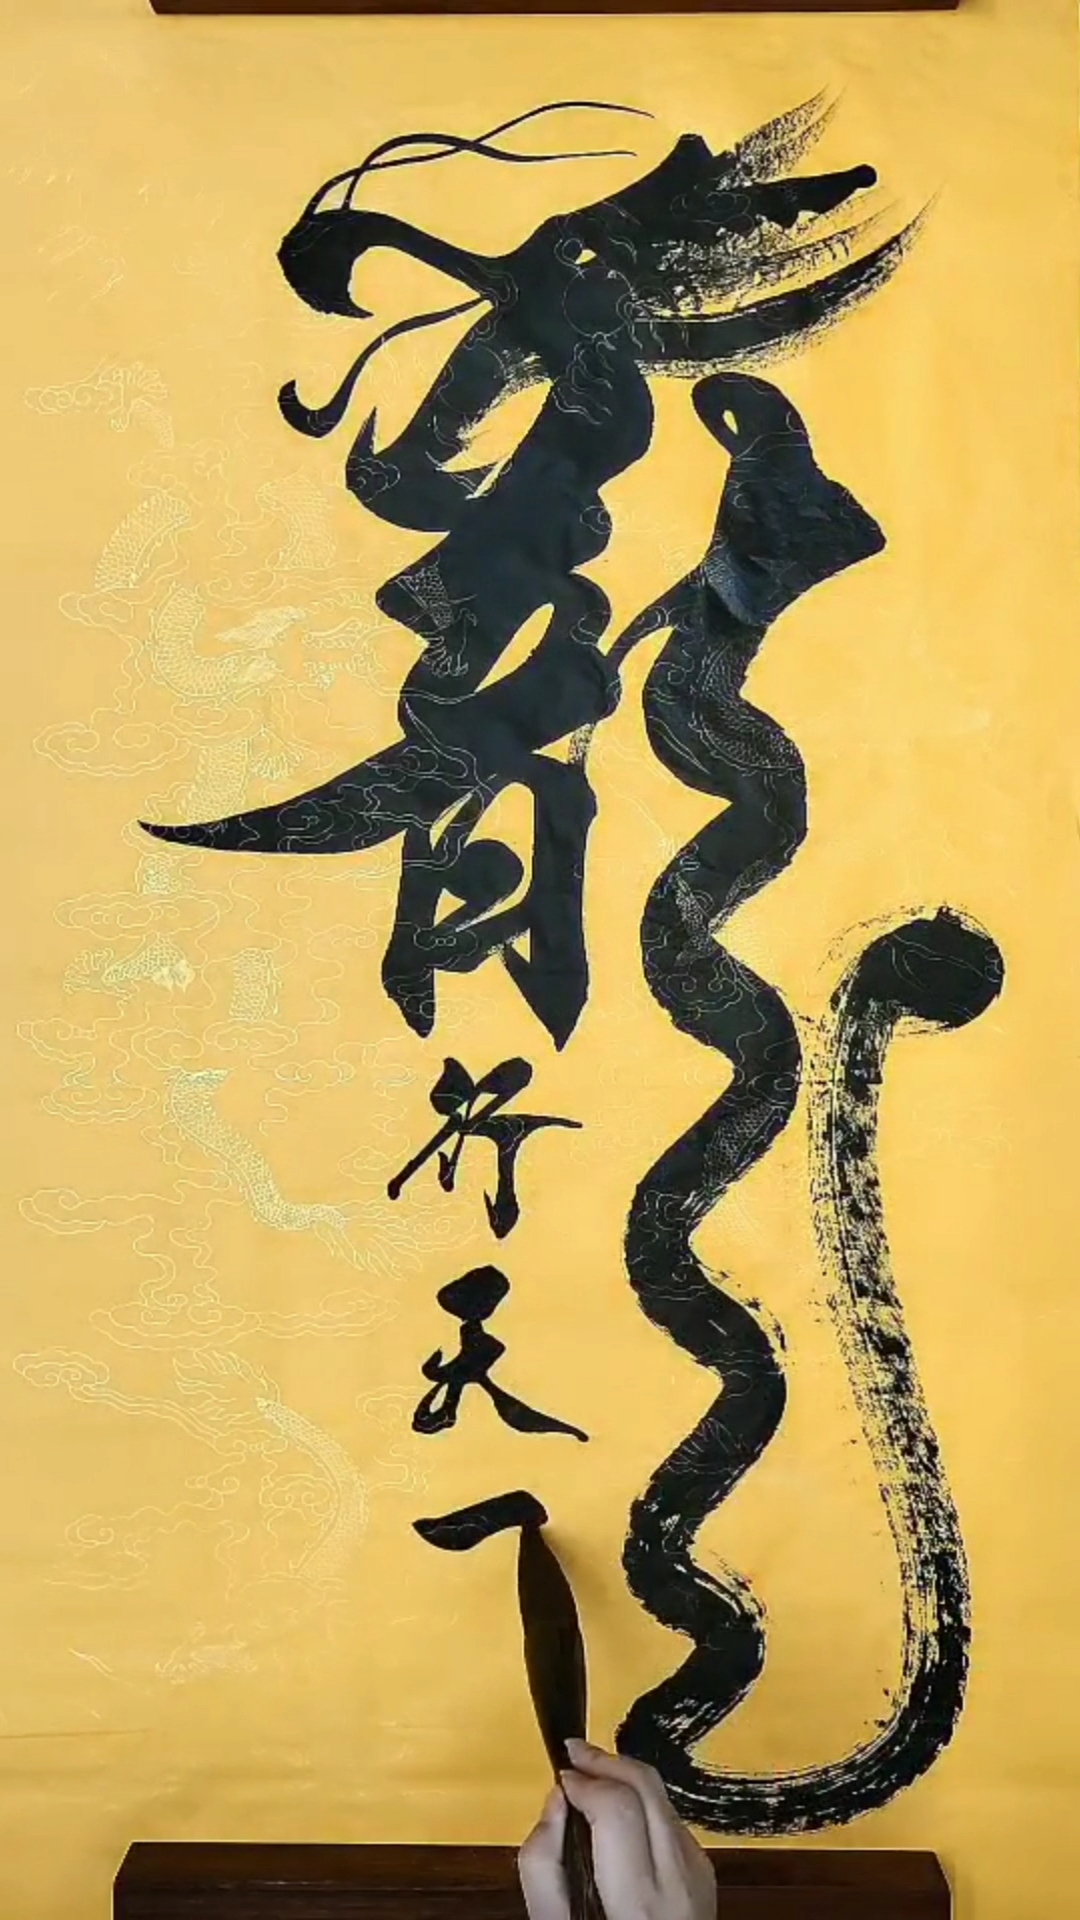 龍
行
天